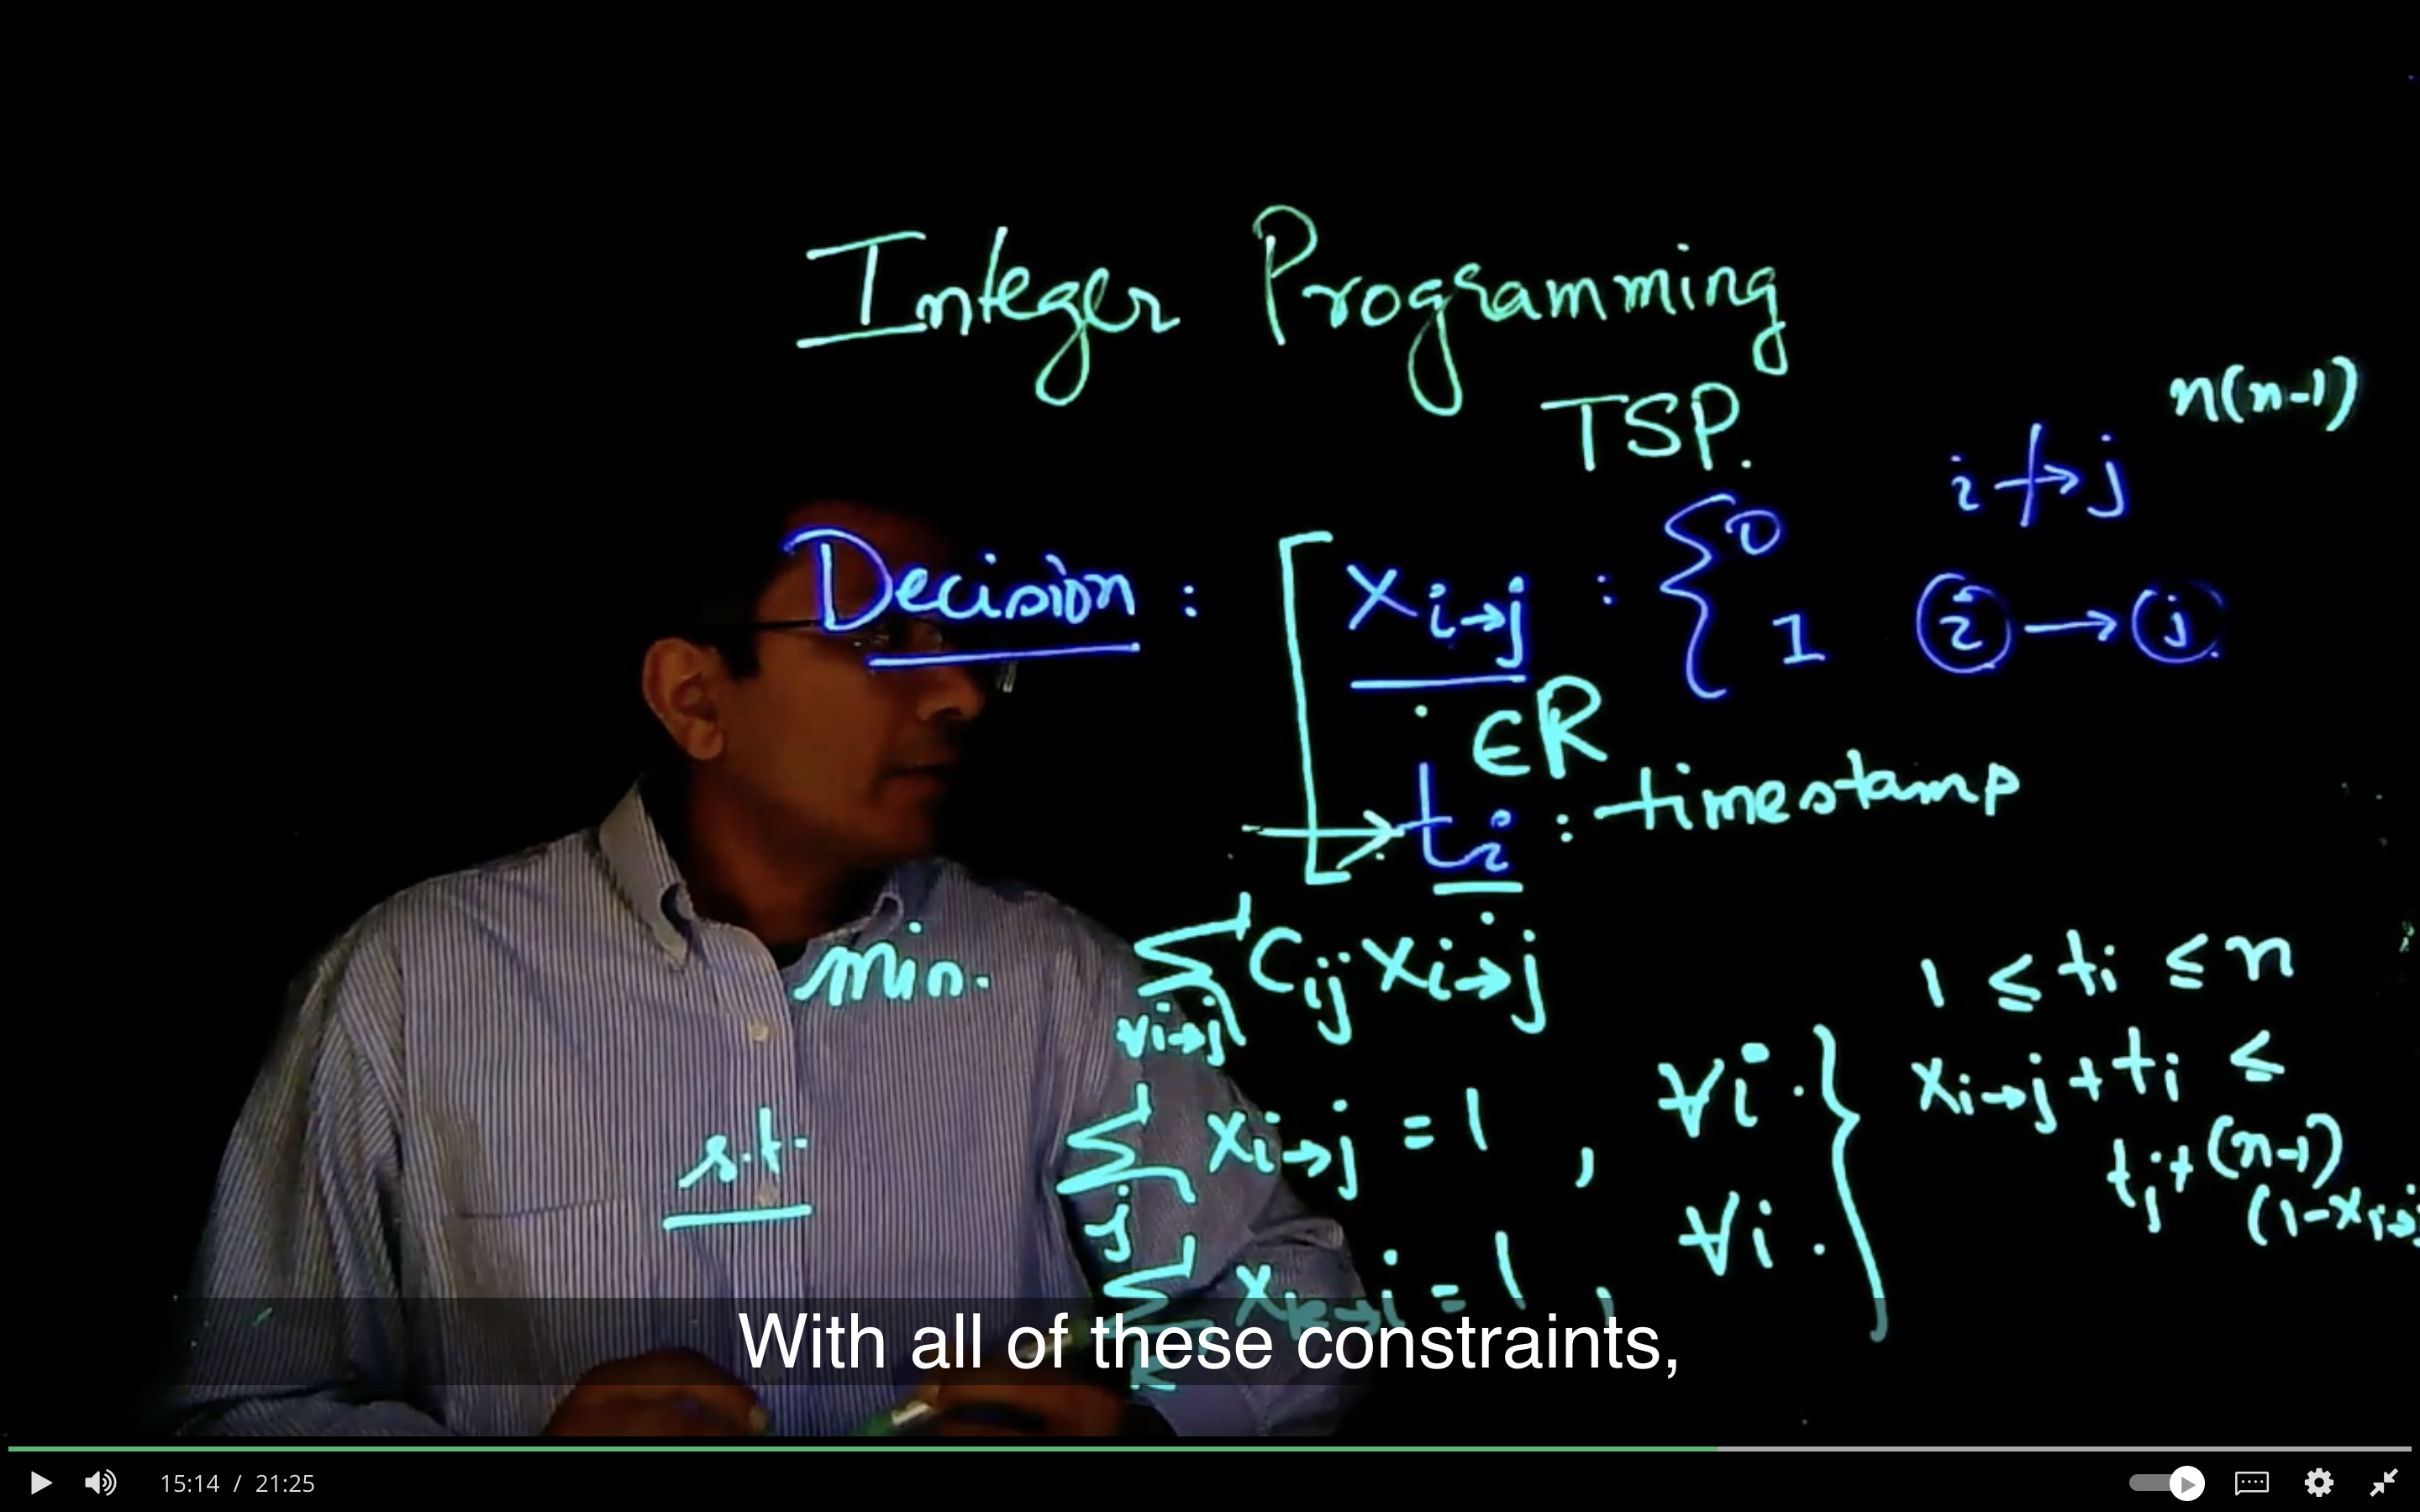 Integer Programming
TSP.
n(n-1)
i ↛ j
Decision : [ x_{i→j} : { 0
1 i → j
∈ R
→ t_i : timestamp
min. ∑_{∀i→j} C_{ij} x_{i→j}
1 ≤ t_i ≤ n
s.t. ∑_j x_{i→j} = 1 , ∀i . }
x_{i→j} + t_i ≤
t_j + (n-1)
(1-x_{i→j
∑_k x_{k→i} = 1 , ∀i .
With all of these constraints,
15:14 / 21:25